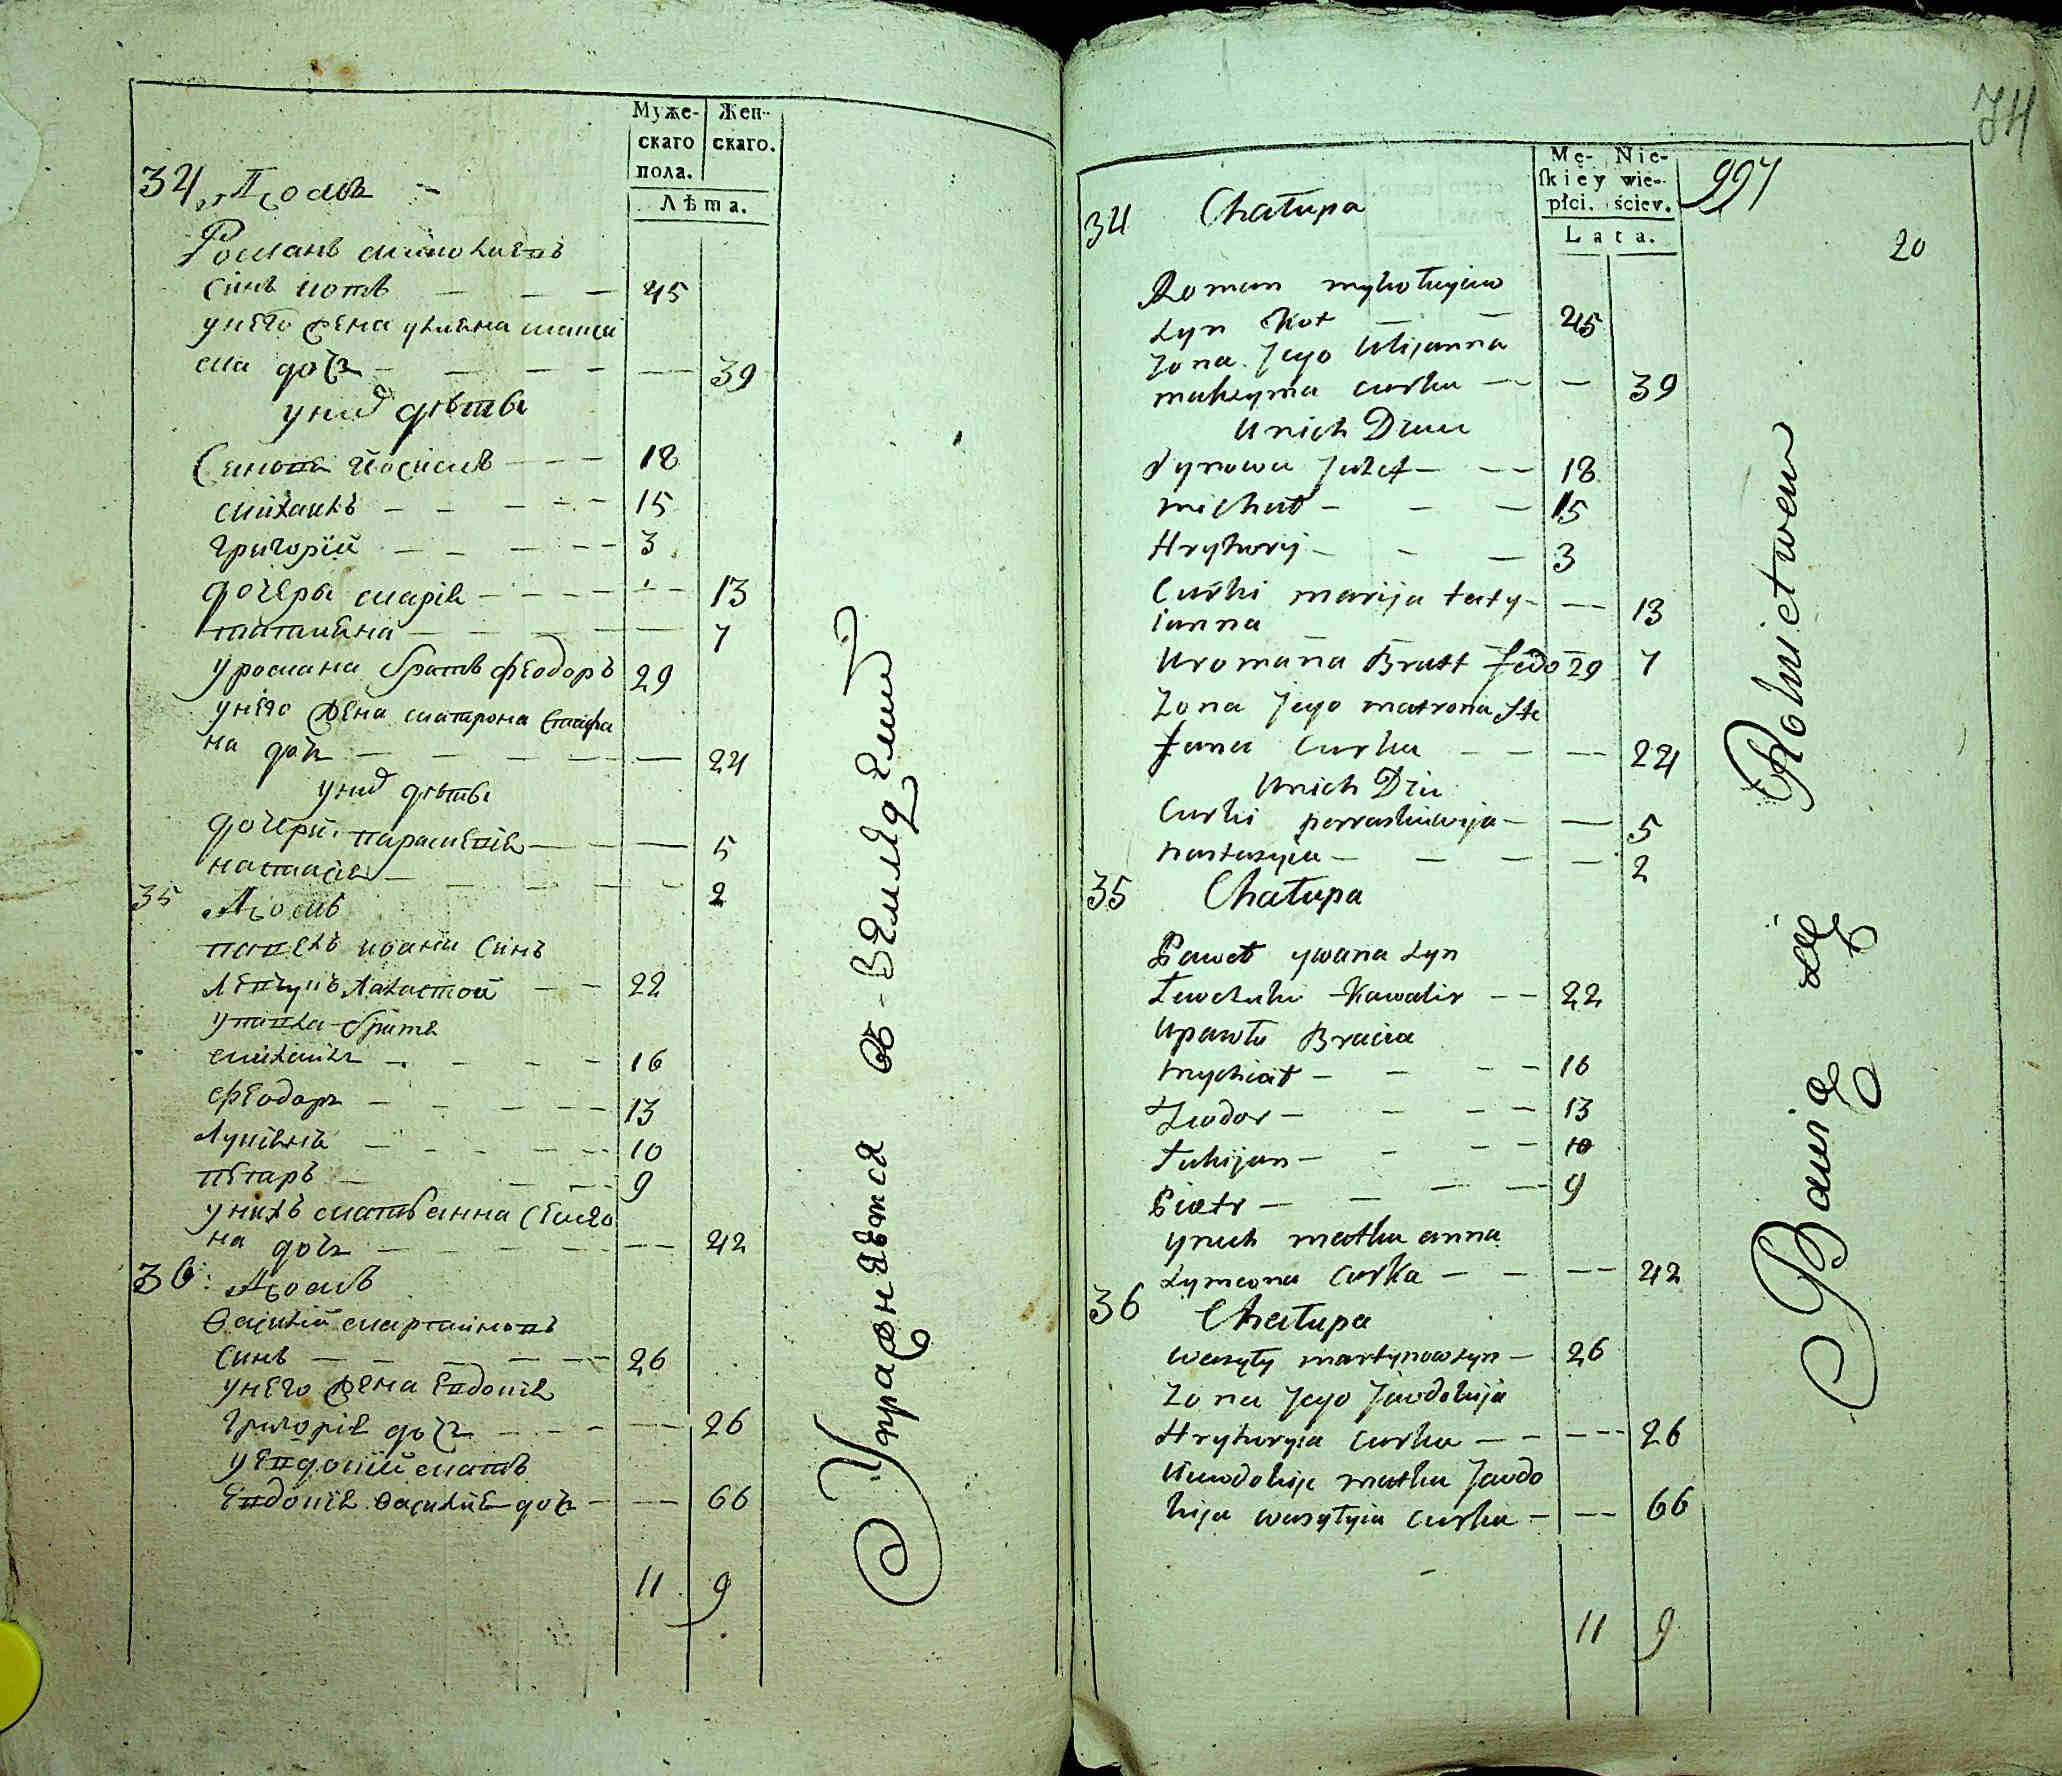 Муже- Жен-
скаго скаго.
пола.
Лѣта.
34 Домъ
Романъ миколаевъ
синъ котъ — — — 45
унего жена улиена макси
ма дочъ — — — — 39
унихъ дѣты
Синовя Иосифъ — — — 18
михаилъ — — — — 15
григорій — — — — 3
дочеры марія — — — — 13
татиена — — — — 7
уромана братъ феодоръ 29
унего жена матрона Стефа
на дочъ — — — — 24
унихъ дѣты
дочери параскевія — — — 5
настасія — — — — 2
35 Домъ
павелъ иоанна синъ
левчукъ Холостой — — 22
упавла братя
михаилъ — — — — 16
феодоръ — — — — 13
Лукиянъ — — — — 10
петаръ — — — — 9
унихъ мать анна Симео
на дочъ — — — — 42
36: Домъ
Василій мартиновъ
синъ — — — — 26
унего жена Евдокія
григорія дочъ — — — — 26
уЕвдокіи мать
Евдокія Василія дочъ — — 66
11 9
Упражняются въ Земледеліи
74
Mę- Nie-
ſkiey wie-
płci. ściey.
Lata.
997
20
34 Chałupa
Roman mykołayiow
syn Kot — — 45
Zona Jego Ulijanna
maksyma curka — — 39
Unich Dzieci
Synowie Juzef — — 18
michał — — — 15
Hryhory — — — 3
Curki marija taty- — 13
ianna
Uromana Bratt fedo 29 7
Zona Jego matrona Ste
fana Curka — — — 24
Unich Dzi
Curki parraskiewija — — 5
nastazyia — — — — 2
35 Chałupa
Paweł ywana syn
Lewchuk Kawalir — — 22
Upawła Bracia
mychiał — — — — 16
Teodor — — — 13
Łukijan — — — 10
Piotr — — — 9
ynich matka anna
Symeona Curka — — — 42
36 Chałupa
Wasyły martynow syn — 26
Zona Jego Jawdokija
Hryhoryia Curka — — — 26
UJawdokije matka Jawdo
kija wasyłyia Curka — — 66
11 9
Bawią się Rolnictwem